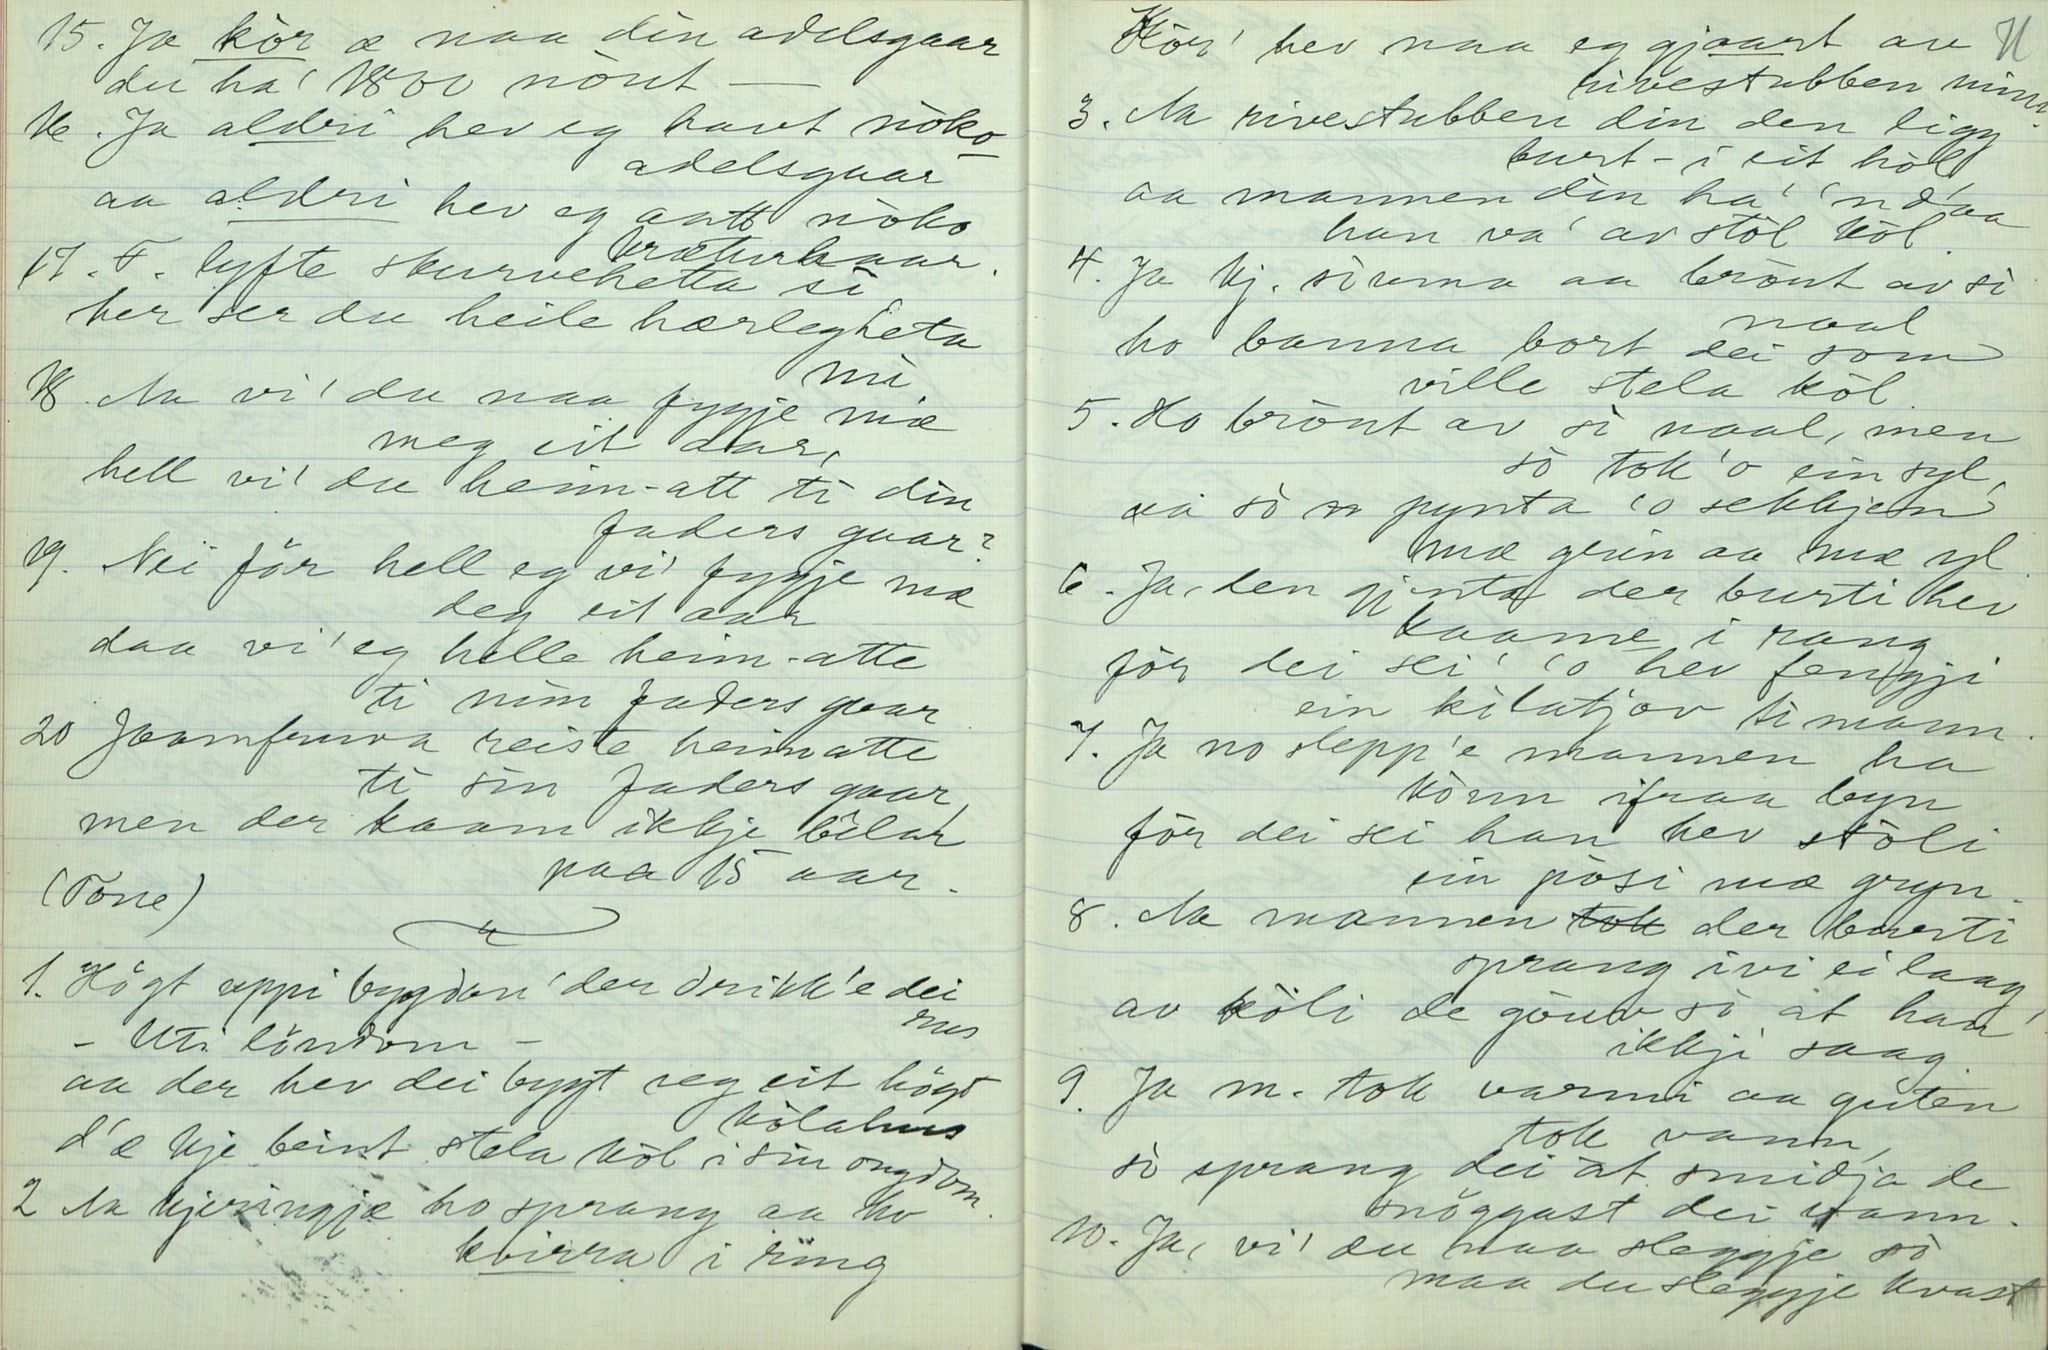 15. Ja kòr æ naa din adelsgaar
du ha' 1800 nònt —
16. Ja aldri hev eg havt nòko
adelsgaar
aa aldri hev eg aatt nòko
krøturhaar.
17. F. lyfte skurvehetta si
her ser du heile hærlegheta
mi
18. Aa vi' du naa fyggje mæ
meg eit aar,
hell vi' du heim-att ti din
faders gaar?
19. Nei för hell eg vi' fyggje mæ
deg eit aar
daa vi' eg helle heim-atte
ti min faders gaar
20 Jaamfruva reiste heimatte
ti sin faders gaar,
men der kaam ikkje bilar
paa 15 aar.
(Tone)
1. Högt uppi bygdæn' der drikk'e dei
rus
- Uti löndom -
aa der hev dei bygt seg eit högt
kòlahus
d'æ kje beint stela kòl i sin ongdom.
2 Aa kjeringjæ ho sprang aa ho
kvirra i ring
Kòr' hev naa eg gjaart av
rivestubben min.
11
3. Aa rivestubben din den ligg
burt - i eit hòl
aa mannen din ha' 'n d'aa
han va' av stòl kòl.
4. Ja kj. sivma aa brònt av si
naal
ho banna bort dei som
ville stela kòl.
5. Ho brònt av si naal, men
sò tok'o ein syl,
aa sò pynta 'o sekkjen
mæ grin aa mæ yl.
6. Ja, den gjenta der burti hev
kaame i rang
för dei sei' 'o hev fengji
ein kilatjov ti mann.
7. Ja no slepp'e mannen ha
kònn ifraa byn
för dei sei han hev stòli
ein pòsi mæ gryn.
8. Aa mannen tok der burti
sprang ivi ei laag
av kòli de gòuv sò at han
ikkji saag.
9. Ja m. tok varmi aa guten
tok vann,
sò sprang dei at smidja de
snöggast dei vann.
10. Ja, vi' du naa sleggje sò
maa du sleggje kvast